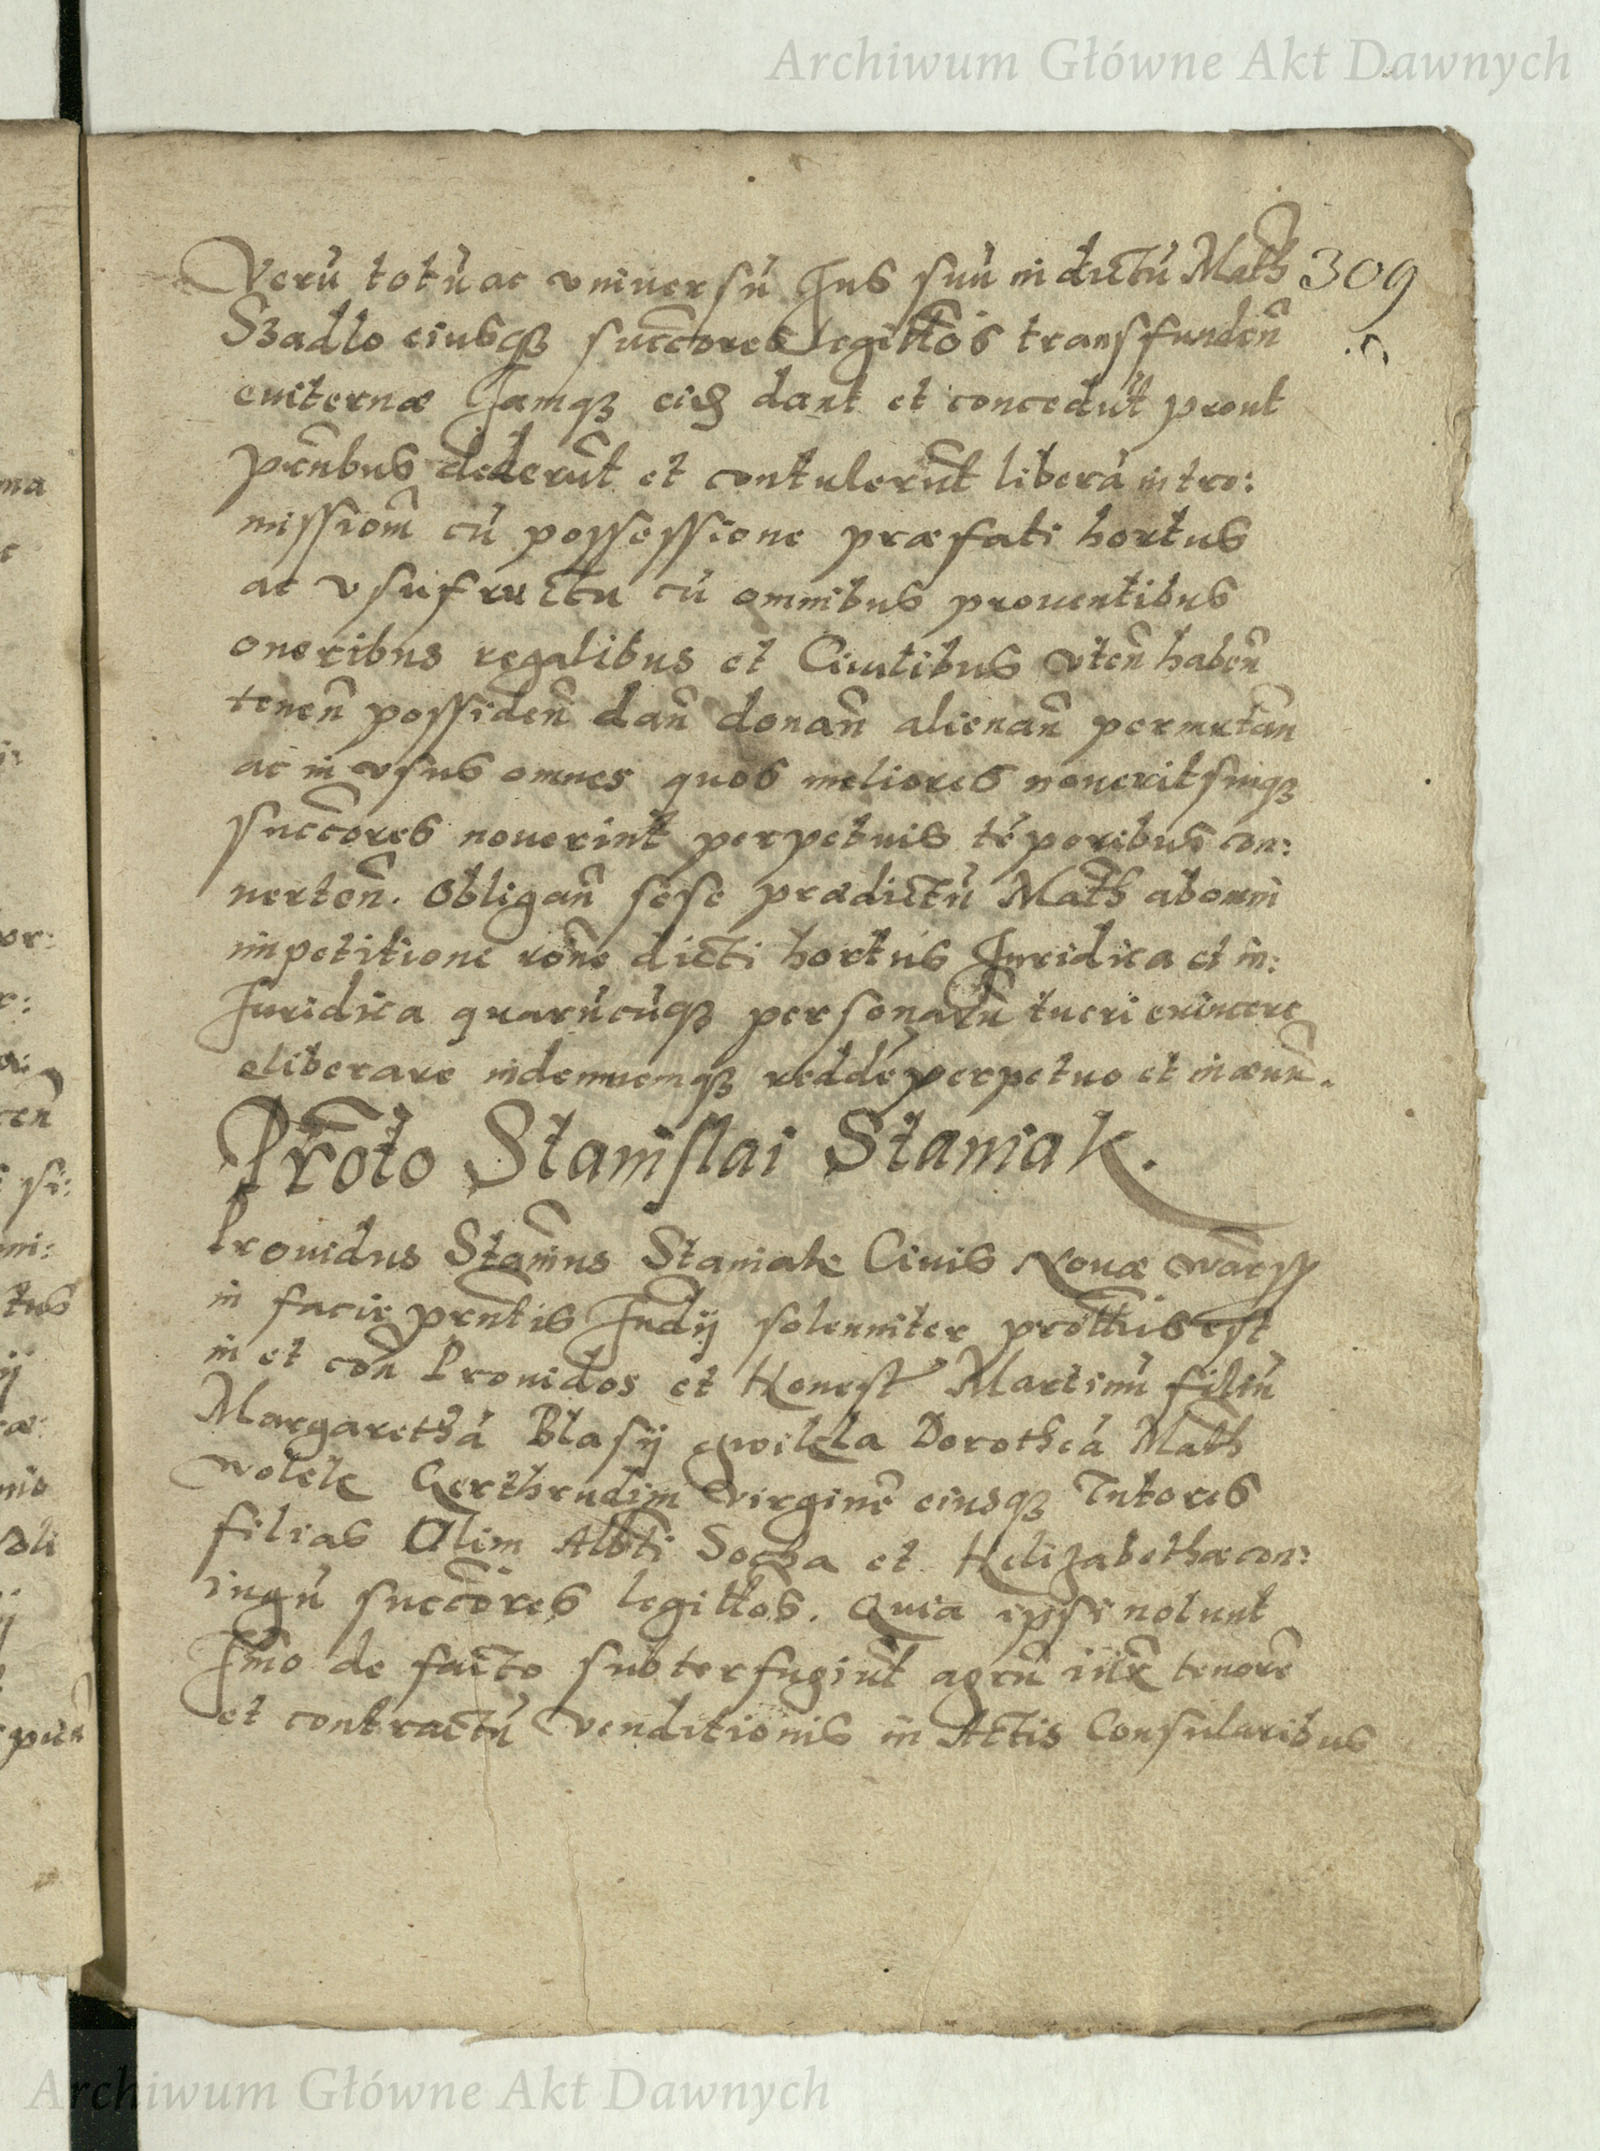 Archiwum Główne Akt Dawnych
309
Verũ totũ ac vniuersũ Jus suũ in dictũ Math̃
Szadło eiusqꝫ succ̃ores legittõs transfundeñ
euiternæ Jamqꝫ eisd dant et concedũt prout
pr̃ntibus dederũt et contulerũt liberã intro:
missiom̃ cũ possessione præfati hortus
ac vsufructu cũ omnibus prouentibus
oneribus regalibus et Ciuitibus vteñ habeñ
teneñ possideñ dañ donañ alienañ permutañ
ac in vsus omnes quos meliores nouerit suiqꝫ
succ̃ores nouerint perpetuis tẽporibus con:
uerteñ. Obligañ sese prædictũ Math̃ ab omni
impetitione rõne dicti hortus Juridica et in:
Juridica quarũcũqꝫ personarũ tueri euincere
eliberare indemnemqꝫ reddẽ perpetuo et in æuũ.
Pr̃oto Stanislai Staniak.
Prouidus Stañus Staniak Ciuis Nouæ Varss̃
in facie pr̃ntis Judij solenniter prõttus est
in et coñ Prouidos et Honest Martinũ filiũ
Margarethã Blasij Dorotheã Math
Wolek Gerthrudim virginẽ eiusqꝫ Tutores
filias Olim Alb̃ti Socha et Helizabethæ con:
iugũ succ̃ores legittõs. Quia ipsi nolunt
Jm̃o de facto subterfugiũt agrũ iux̃ tenorẽ
et contractũ venditionis in Actis Consularibus
Archiwum Główne Akt Dawnych